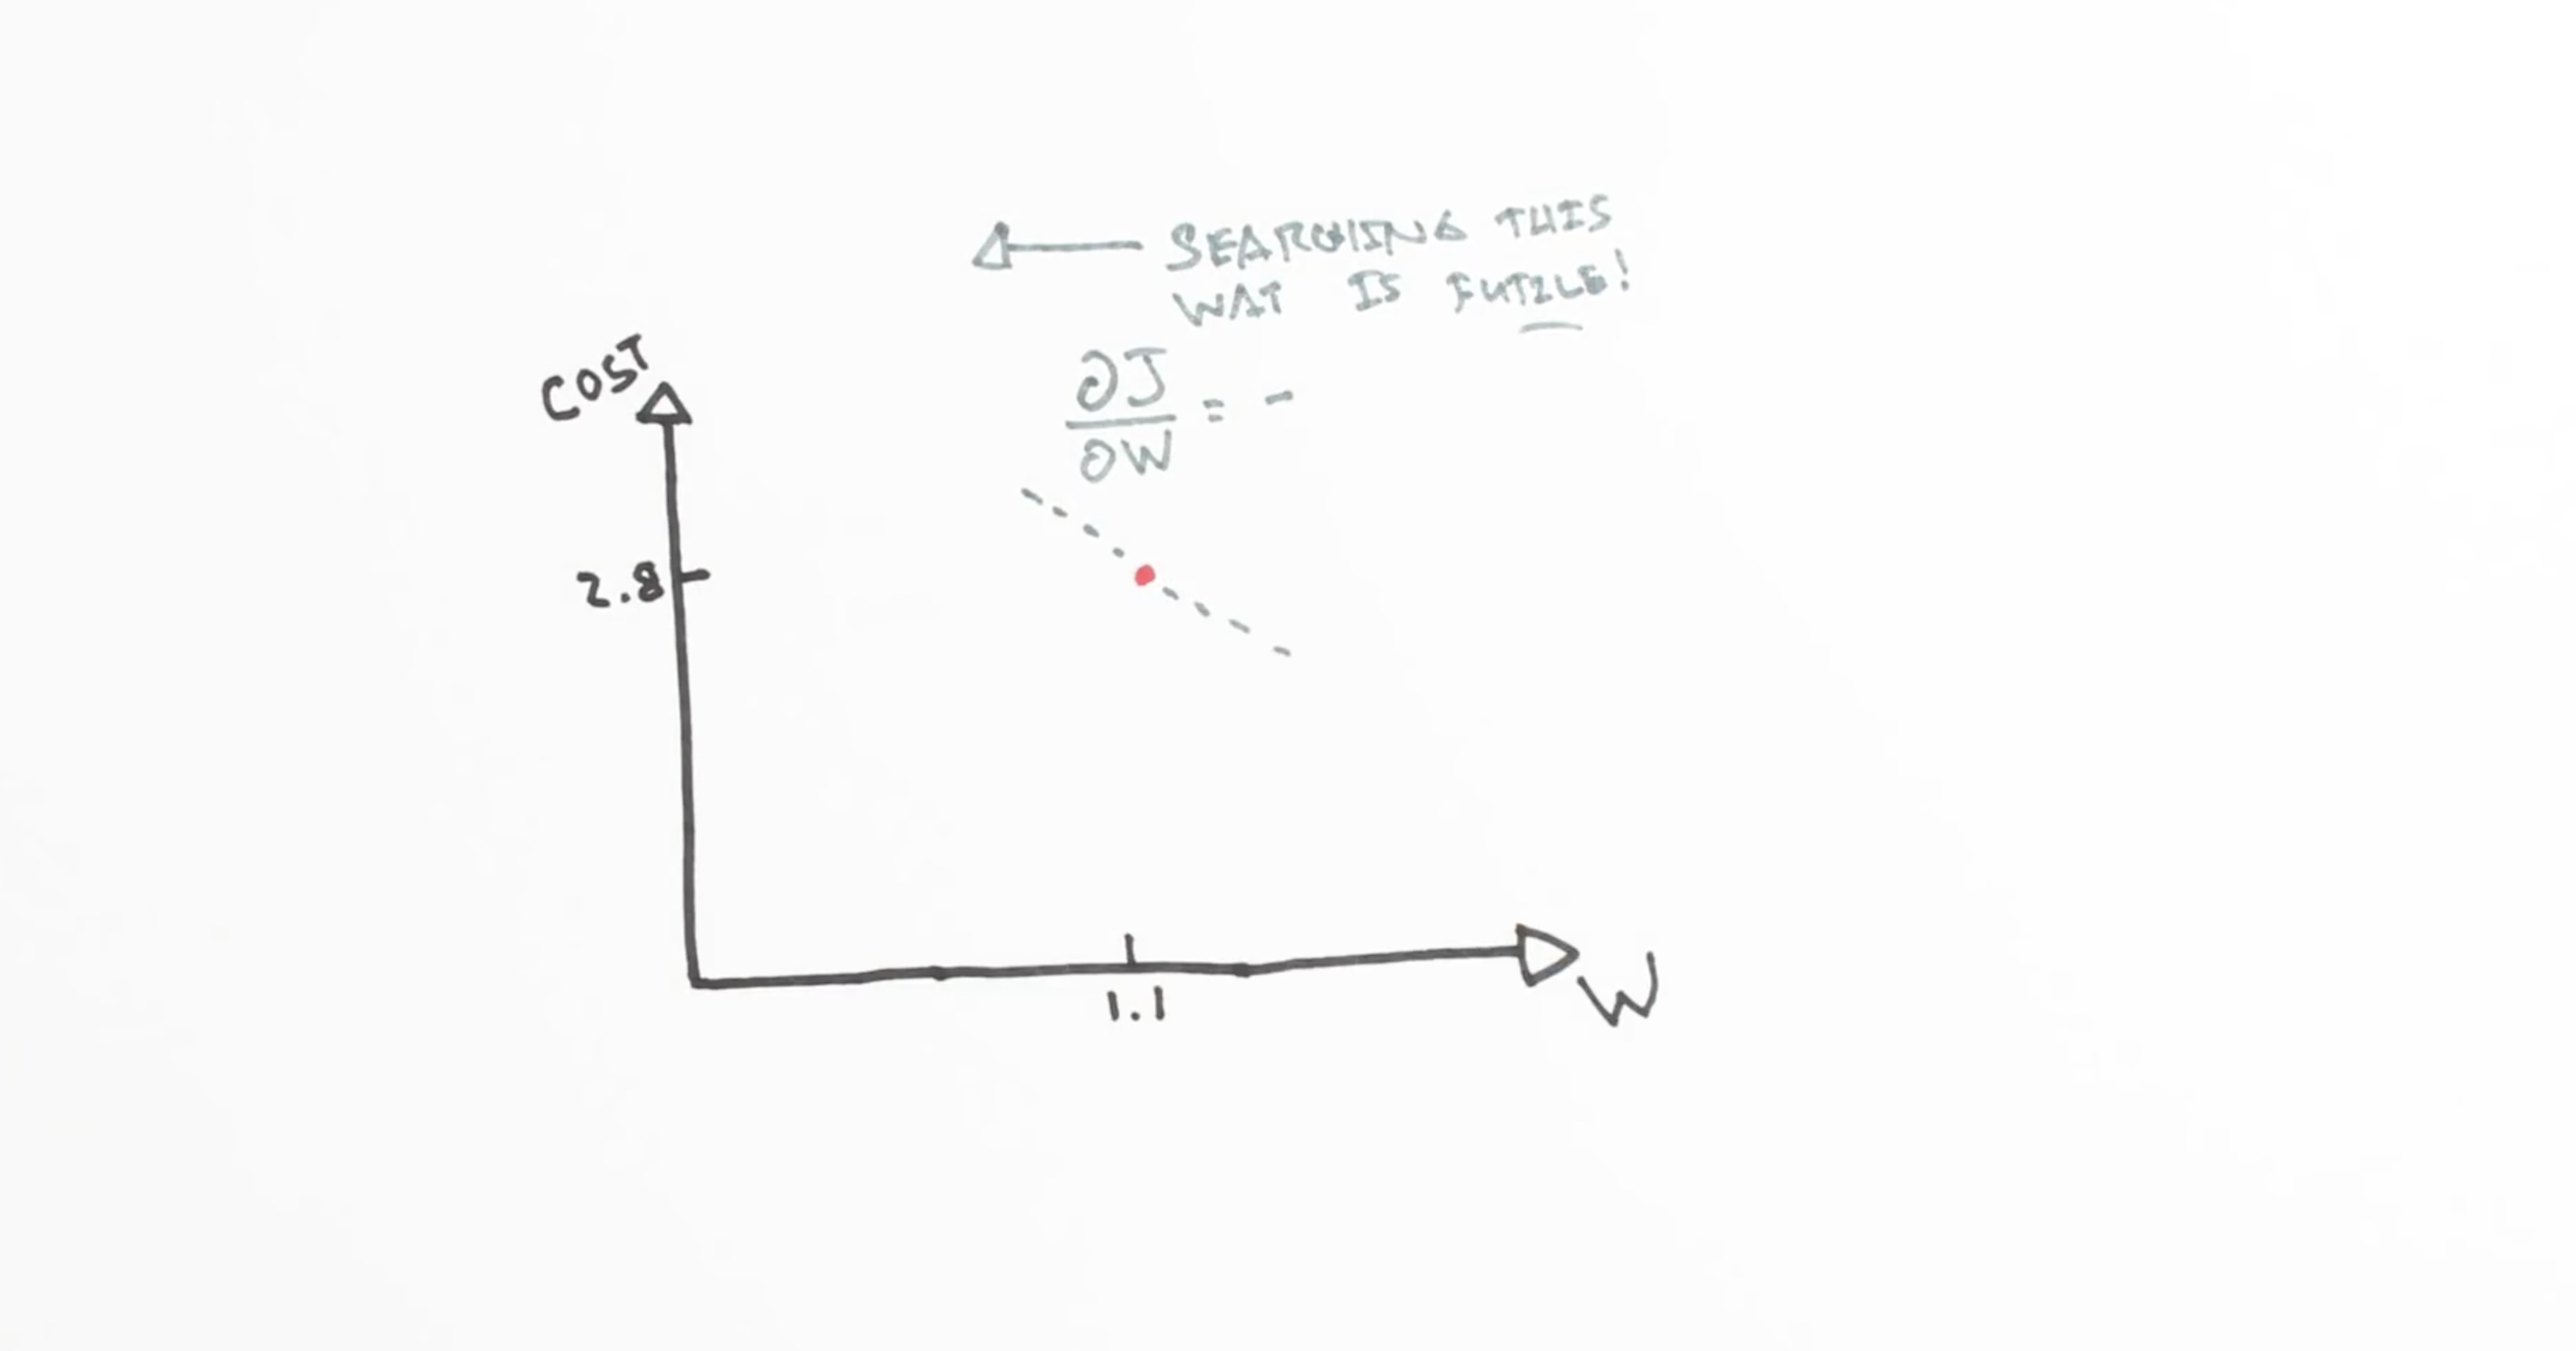 SEARCHING THIS
WAY IS FUTILE!
∂J
∂W
= -
COST
2.8
1.1
W